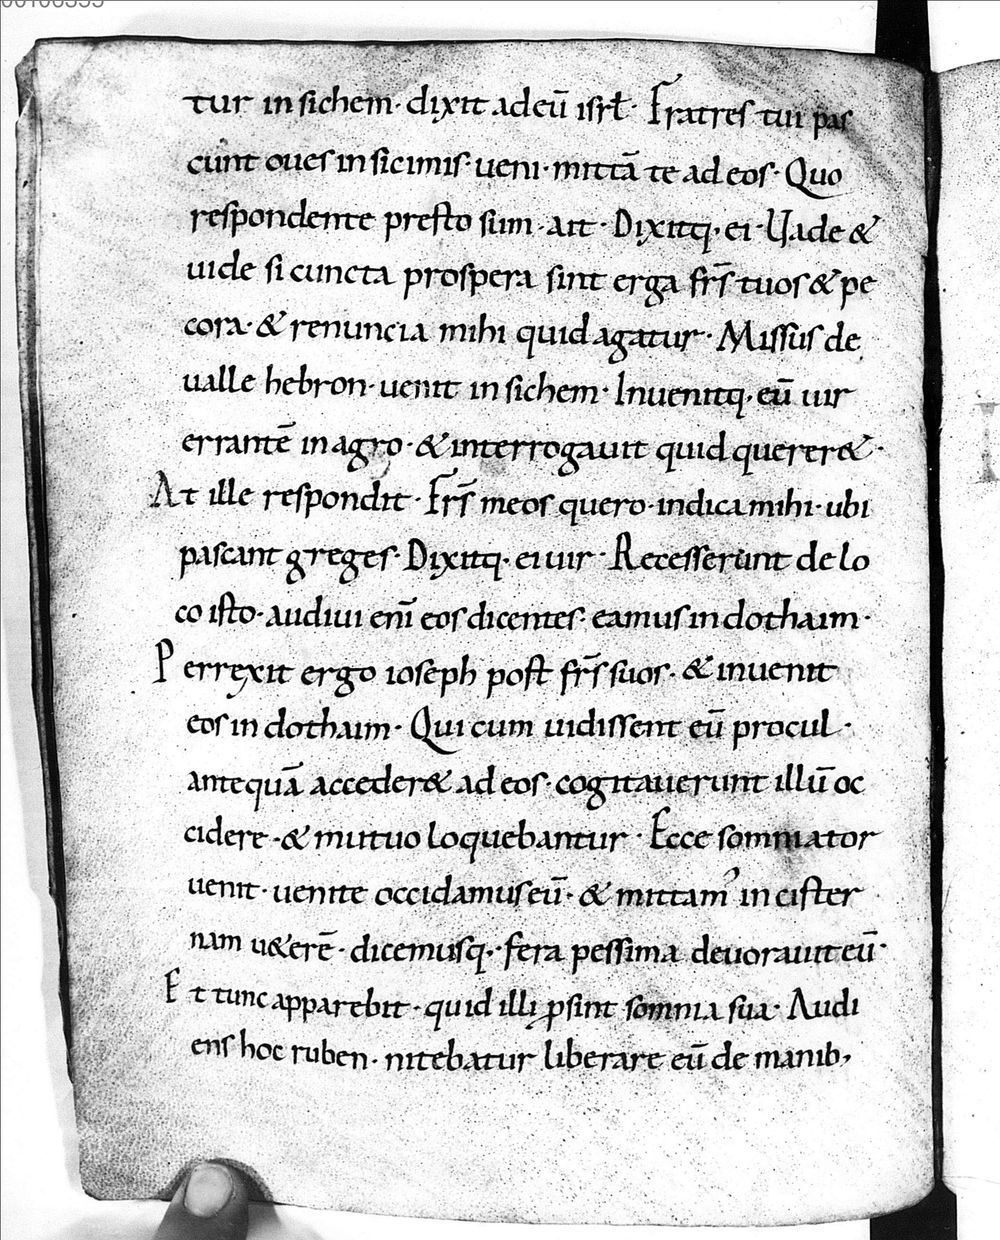 00100555
tur in sichem· dixit ad eū isrł· Fratres tui pas
cunt oues in sicimis· ueni· mittā te ad eos· Quo
respondente presto sum· ait· Dixitq; ei· Uade &
uide si cuncta prospera sint erga fr̄s tuos & pe
cora· & renuncia mihi quid agatur· Missus de
ualle hebron· uenit in sichem· Inuenitq; eū uir
errantē in agro· & interrogauit quid quereret·
At ille respondit· Fr̄s meos quero· indica mihi· ubi
pascant greges· Dixitq; ei uir· Recesserunt de lo
co isto· audiui enī eos dicentes· eamus in dothaim·
Perrexit ergo ioseph post fr̄s suos· & inuenit
eos in dothaim· Qui cum uidissent eū procul·
antequā acceder& ad eos· cogitauerunt illū oc
cidere· & mutuo loquebantur· Ecce somniator
uenit· uenite occidamus eū· & mittam' in cister
nam u&erē· dicemusq;· fera pessima deuorauit eū·
Et tunc apparebit· quid illi ꝓsint somnia sua· Audi
ens hoc ruben· nitebatur liberare eū de manib;